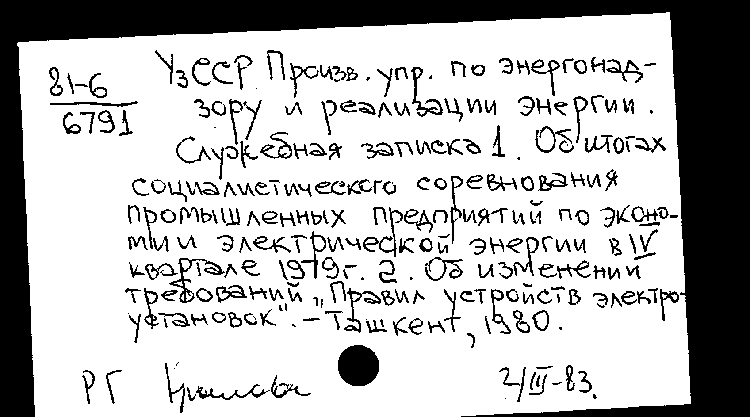 81-6
6791
УзССР Произв. упр. по энергонад-
зору и реализации энергии.
Служебная записка 1. Об итогах
социалистического соревнования
промышленных предприятий по эконо-
мии электрической энергии в IV
квартале 1979 г. 2. Об изменении
требований „Правил устройств электро-
установок“. – Ташкент, 1980.
РГ
2/III-83.